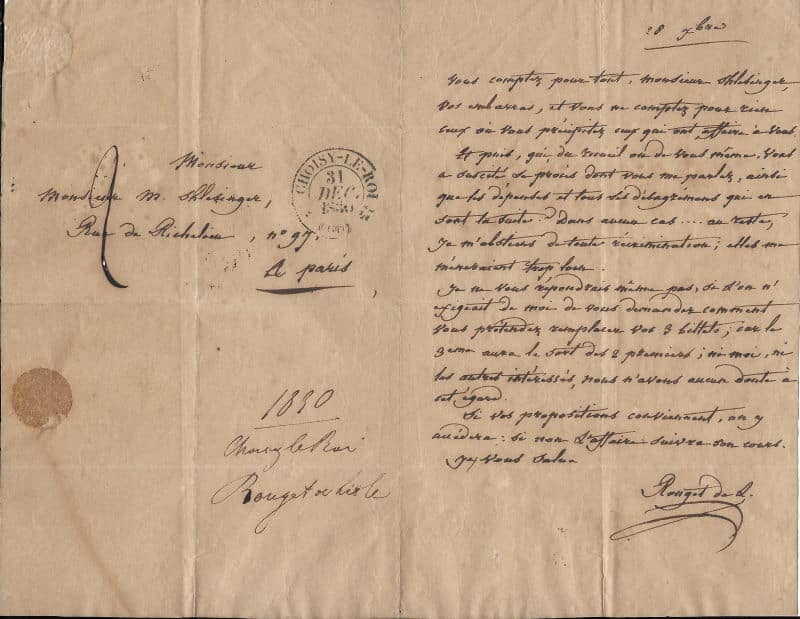 Monsieur
Monsieur M. Shlesinger,
Rue de Richelieu, n° 97.
A paris
CHOISY-LE-ROI
31
DEC.
1830
1830
Choisy le Roi
Rouget de Lisle
28 xbre
Vous comptez pour tout, monsieur Shlesinger,
vos embarras, et vous ne comptez pour rien
ceux où vous précipitez ceux qui ont affaire à vous.
Et puis, qui, du ou de vous même, vous
a suscité le procès dont vous me parlez, ainsi
que les dépenses et tous les désagrémens qui en
sont la suite? Dans aucun cas .... au reste,
je m'abstiens de toute récrimination; elles me
mèneraient trop loin.
Je ne vous repondrais même pas, si l'on n'
exigeait de moi de vous demander comment
vous prétendez remplacer vos 3 billets; car le
3eme aura le sort des 2 premiers; ni moi, ni
les autres intéressés, nous n'avons aucun doute à
cet égard.
Si vos propositions conviennent, on y
accédera: si non l'affaire suivra son cours.
Je vous salue
Rouget de L.